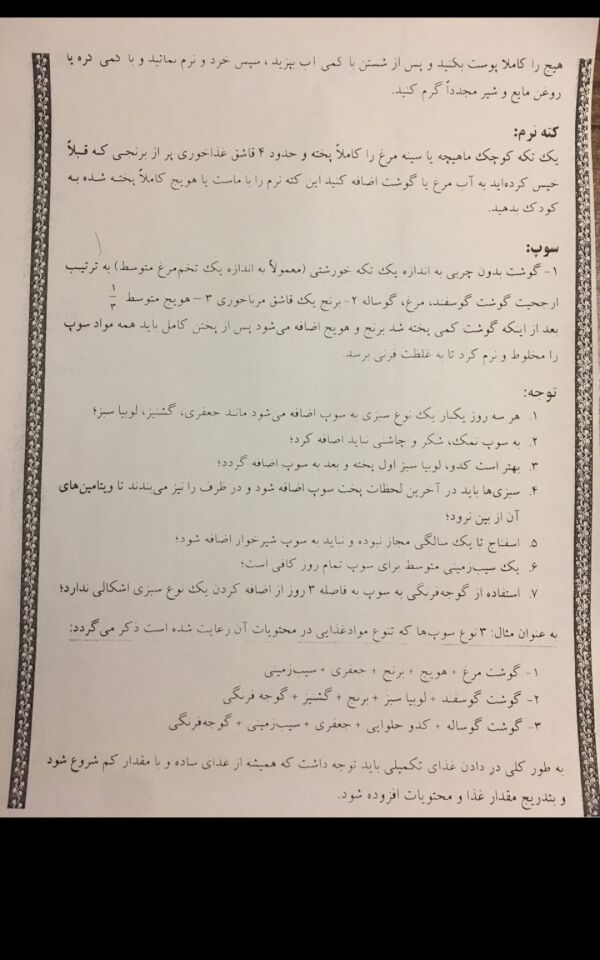 هیج را کاملا پوست بکنید و پس از شستن با کمی آب بپزید، سپس خرد و نرم نمائید و با کمی کره یا
روغن مایع و شیر مجدداً گرم کنید.
کته نرم:
یک تکه کوچک ماهیچه یا سینه مرغ را کاملاً پخته و حدود ۴ قاشق غذاخوری پر از برنجی که قبلاً
خیس کرده‌اید به آب مرغ یا گوشت اضافه کنید این کته نرم را با ماست یا هویج کاملاً پخته شده به
کودک بدهید.
سوپ:
۱- گوشت بدون چربی به اندازه یک تکه خورشتی (معمولاً به اندازه یک تخم‌مرغ متوسط) به ترتیب
ارجحیت گوشت گوسفند، مرغ، گوساله ۲- برنج یک قاشق مرباخوری ۳- هویج متوسط ۱/۳
بعد از اینکه گوشت کمی پخته شد برنج و هویج اضافه می‌شود پس از پختن کامل باید همه مواد سوپ
را مخلوط و نرم کرد تا به غلظت فرنی برسد.
توجه:
۱. هر سه روز یکبار یک نوع سبزی به سوپ اضافه می‌شود مانند جعفری، گشنیز، لوبیا سبز؛
۲. به سوپ نمک، شکر و چاشنی نباید اضافه کرد؛
۳. بهتر است کدو، لوبیا سبز اول پخته و بعد به سوپ اضافه گردد؛
۴. سبزی‌ها باید در آخرین لحظات پخت سوپ اضافه شود و در ظرف را نیز می‌بندند تا ویتامین‌های
آن از بین نرود؛
۵. اسفناج تا یک سالگی مجاز نبوده و نباید به سوپ شیرخوار اضافه شود؛
۶. یک سیب‌زمینی متوسط برای سوپ تمام روز کافی است؛
۷. استفاده از گوجه‌فرنگی به سوپ به فاصله ۳ روز از اضافه کردن یک نوع سبزی اشکالی ندارد؛
به عنوان مثال: ۳ نوع سوپ‌ها که تنوع موادغذایی در محتویات آن رعایت شده است ذکر می‌گردد:
۱- گوشت مرغ + هویج + برنج + جعفری + سیب‌زمینی
۲- گوشت گوسفند + لوبیا سبز + برنج + گشنیز + گوجه فرنگی
۳- گوشت گوساله + کدو حلوایی + جعفری + سیب‌زمینی + گوجه‌فرنگی
به طور کلی در دادن غذای تکمیلی باید توجه داشت که همیشه از غذای ساده و با مقدار کم شروع شود
و بتدریج مقدار غذا و محتویات افزوده شود.